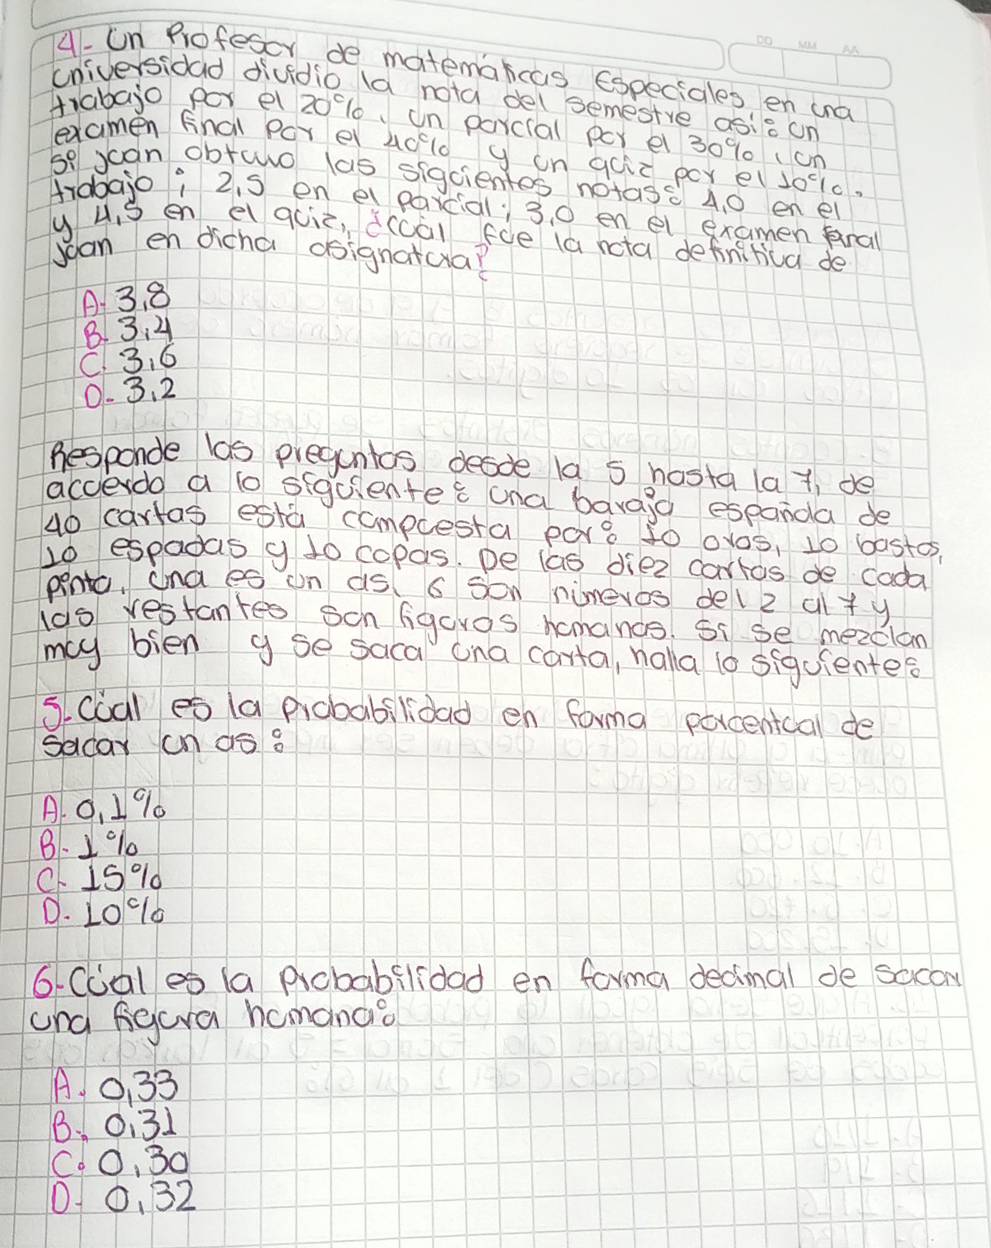 DD MM AA
4- Un Profesor de matemáticas Especiales en una
universidad dividio la nota del semestre asi: un
trabajo por el 20%, un parcial por el 30%, un
examen final por el 40% y un quiz por el 10%.
Si juan obtuvo las siguientes notas: 4,0 en el
trabajo; 2,5 en el parcial; 3,0 en el examen final
y 4,5 en el quiz, ¿cúal fue la nota definitiva de
juan en dicha asignatura?
A. 3,8
B. 3,4
C. 3,6
D. 3,2
Responde las preguntas desde la 5 hasta la 7, de
acuerdo a lo siguiente: una baraja española de
40 cartas está compuesta por: 10 oros, 10 bastos,
10 espadas y 10 copas. De las diez cartas de cada
pinta, una es un as, 6 son números del 2 al 7 y
las restantes son figuras humanas. Si se mezclan
muy bien y se saca una carta, halla lo siguiente:
5. Cúal es la probabilidad en forma porcentual de
sacar un as:
A. 0,1%
B. 1%
C. 15%
D. 10%
6. Cúal es la probabilidad en forma decimal de sacar
una figura humana:
A. 0,33
B. 0,31
C. 0,30
D. 0,32